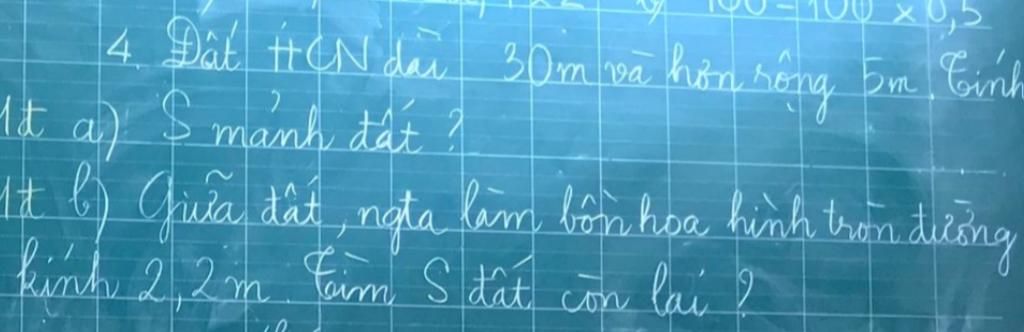 100 - 100 × 0,5
4. Đất HCN dài 30m và hơn rộng 5m. Tính
1đ a) S mảnh đất ?
1đ b) Giữa đất, ngta làm bồn hoa hình tròn đường
kính 2,2m. Tìm S đất còn lại ?